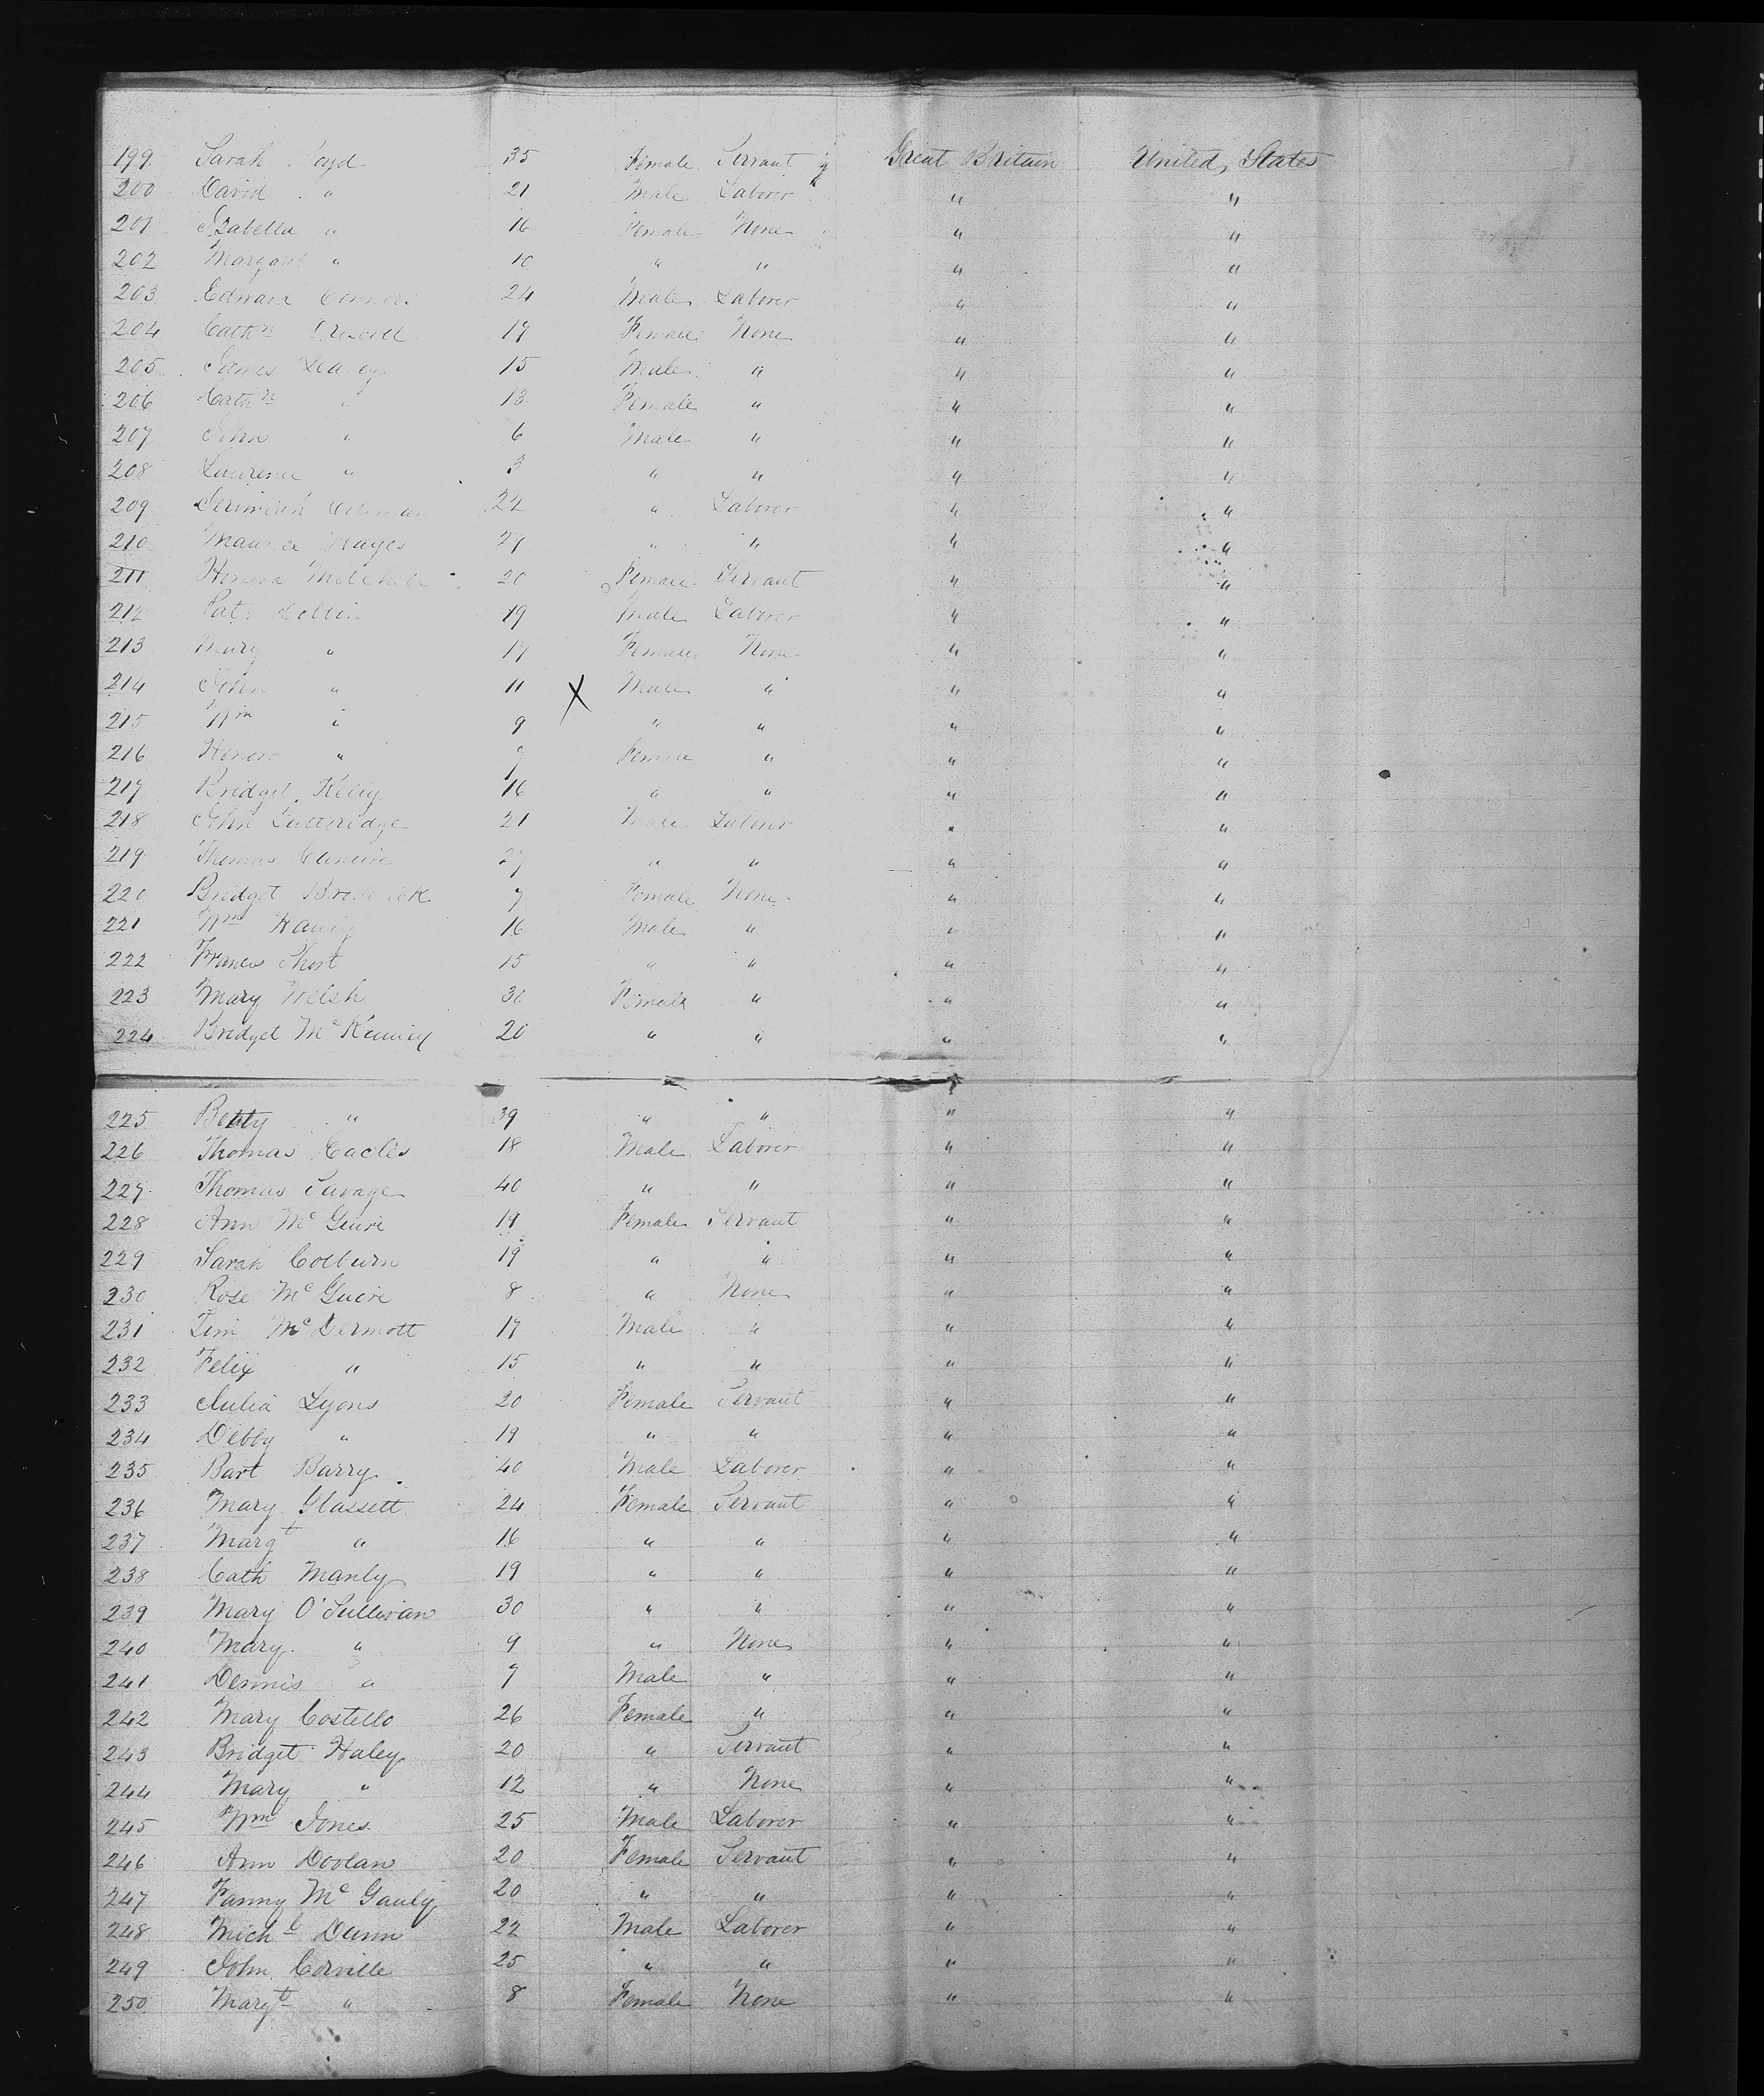 199 Sarah 35 Female Servant Great Britain United States
200 David " 21 Male Laborer " "
201 Izabella " 16 Female None " "
202 Margaret " 10 " " " "
203 Edward 24 Male Laborer " "
204 Cathn 17 Female None " "
205 James Leary 15 Male " " "
206 Cathn " 13 Female " " "
207 John " 6 Male " " "
208 Lawrence " 3 " " " "
209 Jerimiah 22 " Laborer " "
210 Maurice Hayes 21 " " " "
211 Honora Mitchell 20 Female Servant " "
212 Pat 19 Male Laborer " "
213 Mary " 17 Female None " "
214 John " 11 X Male " " "
215 Wm " 9 " " " "
216 Honora " Female " " "
217 Bridget Kelly 16 " " " "
218 John 21 Male Laborer " "
219 Thomas 27 " " " "
220 Bridget 7 Female None " "
221 Wm 16 Male " " "
222 Francis Short 15 " " " "
223 Mary Welsh 30 Female " " "
224 Bridget 20 " " " "
225 Betty " 39 " " " "
226 Thomas 18 Male Laborer " "
227 Thomas Savage 40 " " " "
228 Ann McGuire 19 Female Servant " "
229 Sarah Colburn 19 " " " "
230 Rose McGuire 8 " None " "
231 Tim McDermott 17 Male " " "
232 Felix " 15 " " " "
233 Julia Lyons 20 Female Servant " "
234 Debby " 19 " " " "
235 Bart Barry 40 Male Laborer " "
236 Mary Glassett 24 Female Servant " "
237 Margt " 16 " " " "
238 Cath Manly 19 " " " "
239 Mary O'Sullivan 30 " " " "
240 Mary " 9 " None " "
241 Dennis " 7 Male " " "
242 Mary Costello 26 Female " " "
243 Bridget Haley 20 " Servant " "
244 Mary " 12 " None " "
245 Wm Jones 25 Male Laborer " "
246 Ann Doolan 20 Female Servant " "
247 Fanny McGauly 20 " " " "
248 Michl Dunn 22 Male Laborer " "
249 John Corville 25 " " " "
250 Margt " 8 Female None " "